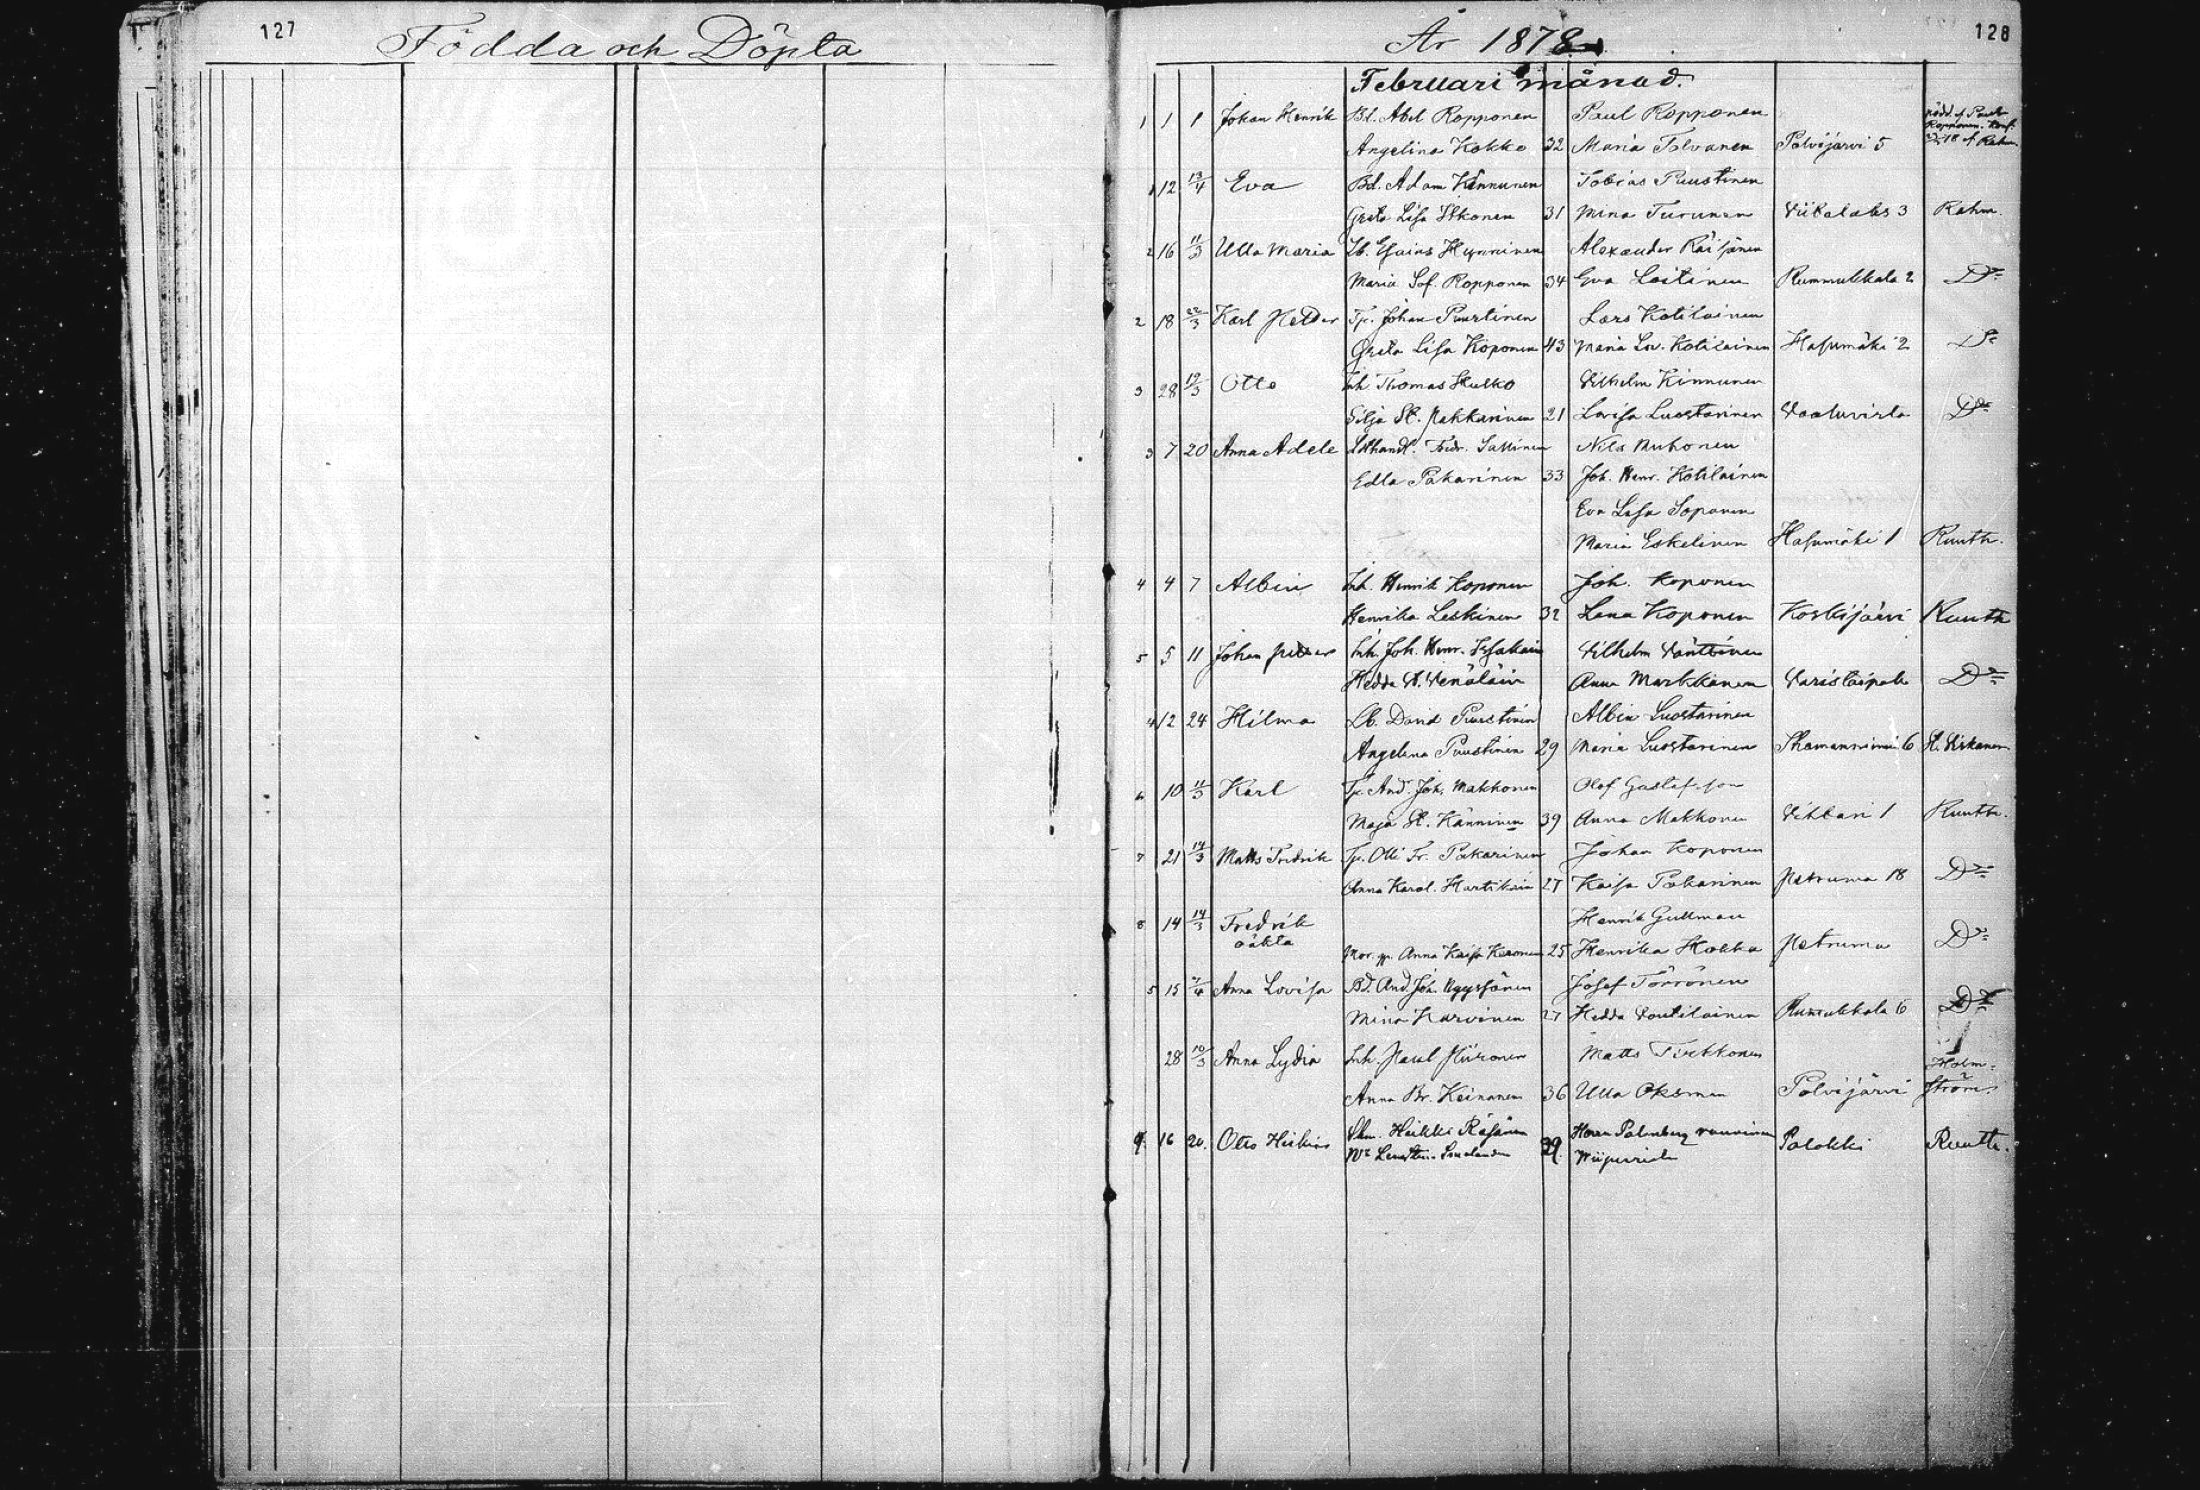 127
Födda och Döpta
År 1878
128
Februari månad.
1 1 1 Johan Henrik Bd. Abel Ropponen Paul Ropponen nödd. af Paul
Ropponen. Konf.
Angelina Kokko 32 Maria Tolvanen Polvijärvi 5 18 af Rahm
1 12 13/4 Eva Bd. Adam Kinnunen Tobias Puustinen
Greta Lisa Ikonen 31 Mina Turunen Viitalaks 3 Rahm.
2 16 11/3 Ulla Maria Lb. Esaias Hynninen Alexander Räisänen
Maria Sof. Ropponen 34 Eva Laitinen Rummukkala 2 Do
2 18 22/3 Karl Petter Tp. Johan Puustinen Lars Kotilainen
Greta Lisa Koponen 43 Maria Lov. Kotilainen Hasumäki 2 Do
3 28 19/3 Otto Inh. Thomas Husko Vilhelm Kinnunen
Silja St. Pakkarinen 21 Lovisa Luostarinen Vaaluvirta Do
3 7 20 Anna Adele Fredr. Sallinen Nils Muhonen
Edla Pakarinen 33 Joh. Henr. Kotilainen
Eva Lisa Soponen
Maria Eskelinen Hasumäki 1 Ruuth.
4 4 7 Albin Inh. Henrik Koponen Joh. Koponen
Henrika Leskinen 32 Lena Koponen Koskijärvi Ruuth
5 5 11 Johan Petter Inh. Joh. Henr. Vilhelm Vänttinen
Hedda W. Venäläin Anna Markkanen Varistaipale Do
4 12 24 Hilma Lb. David Puustinen Albin Luostarinen
Angelina Puustinen 29 Maria Luostarinen 6
6 10 11/3 Karl Tp. And. Joh. Makkonen Olof Gustafsson
Maja St. Känninen 39 Anna Makkonen Vihtari 1 Ruuth.
7 21 14/3 Matts Fredrik Tp. Olli Fr. Pakarinen Johan Koponen
Anna Karol. Hartikain 27 Kaisa Pakarinen Petruma 18 Do
8 14 14/3 Fredrik Henrik Gullman
oäkta
Mor. pp. Anna Kaisa 25 Henrika Kokko Petruma Do
5 15 7/4 Anna Lovisa Bd. And. Joh. Nyyssönen Josef Törrönen
Mina Karvinen 27 Hedda Voutilainen Rummukkala 6 Do
28 10/3 Anna Lydia Inh. Paul Piironen Matts Tirkkonen Holm-
Anna Br. Keinanen 36 Ulla Oksman Polvijärvi ström.
9 16 20. Otto Heikki Räsänen
29. Palokki Ruuth.